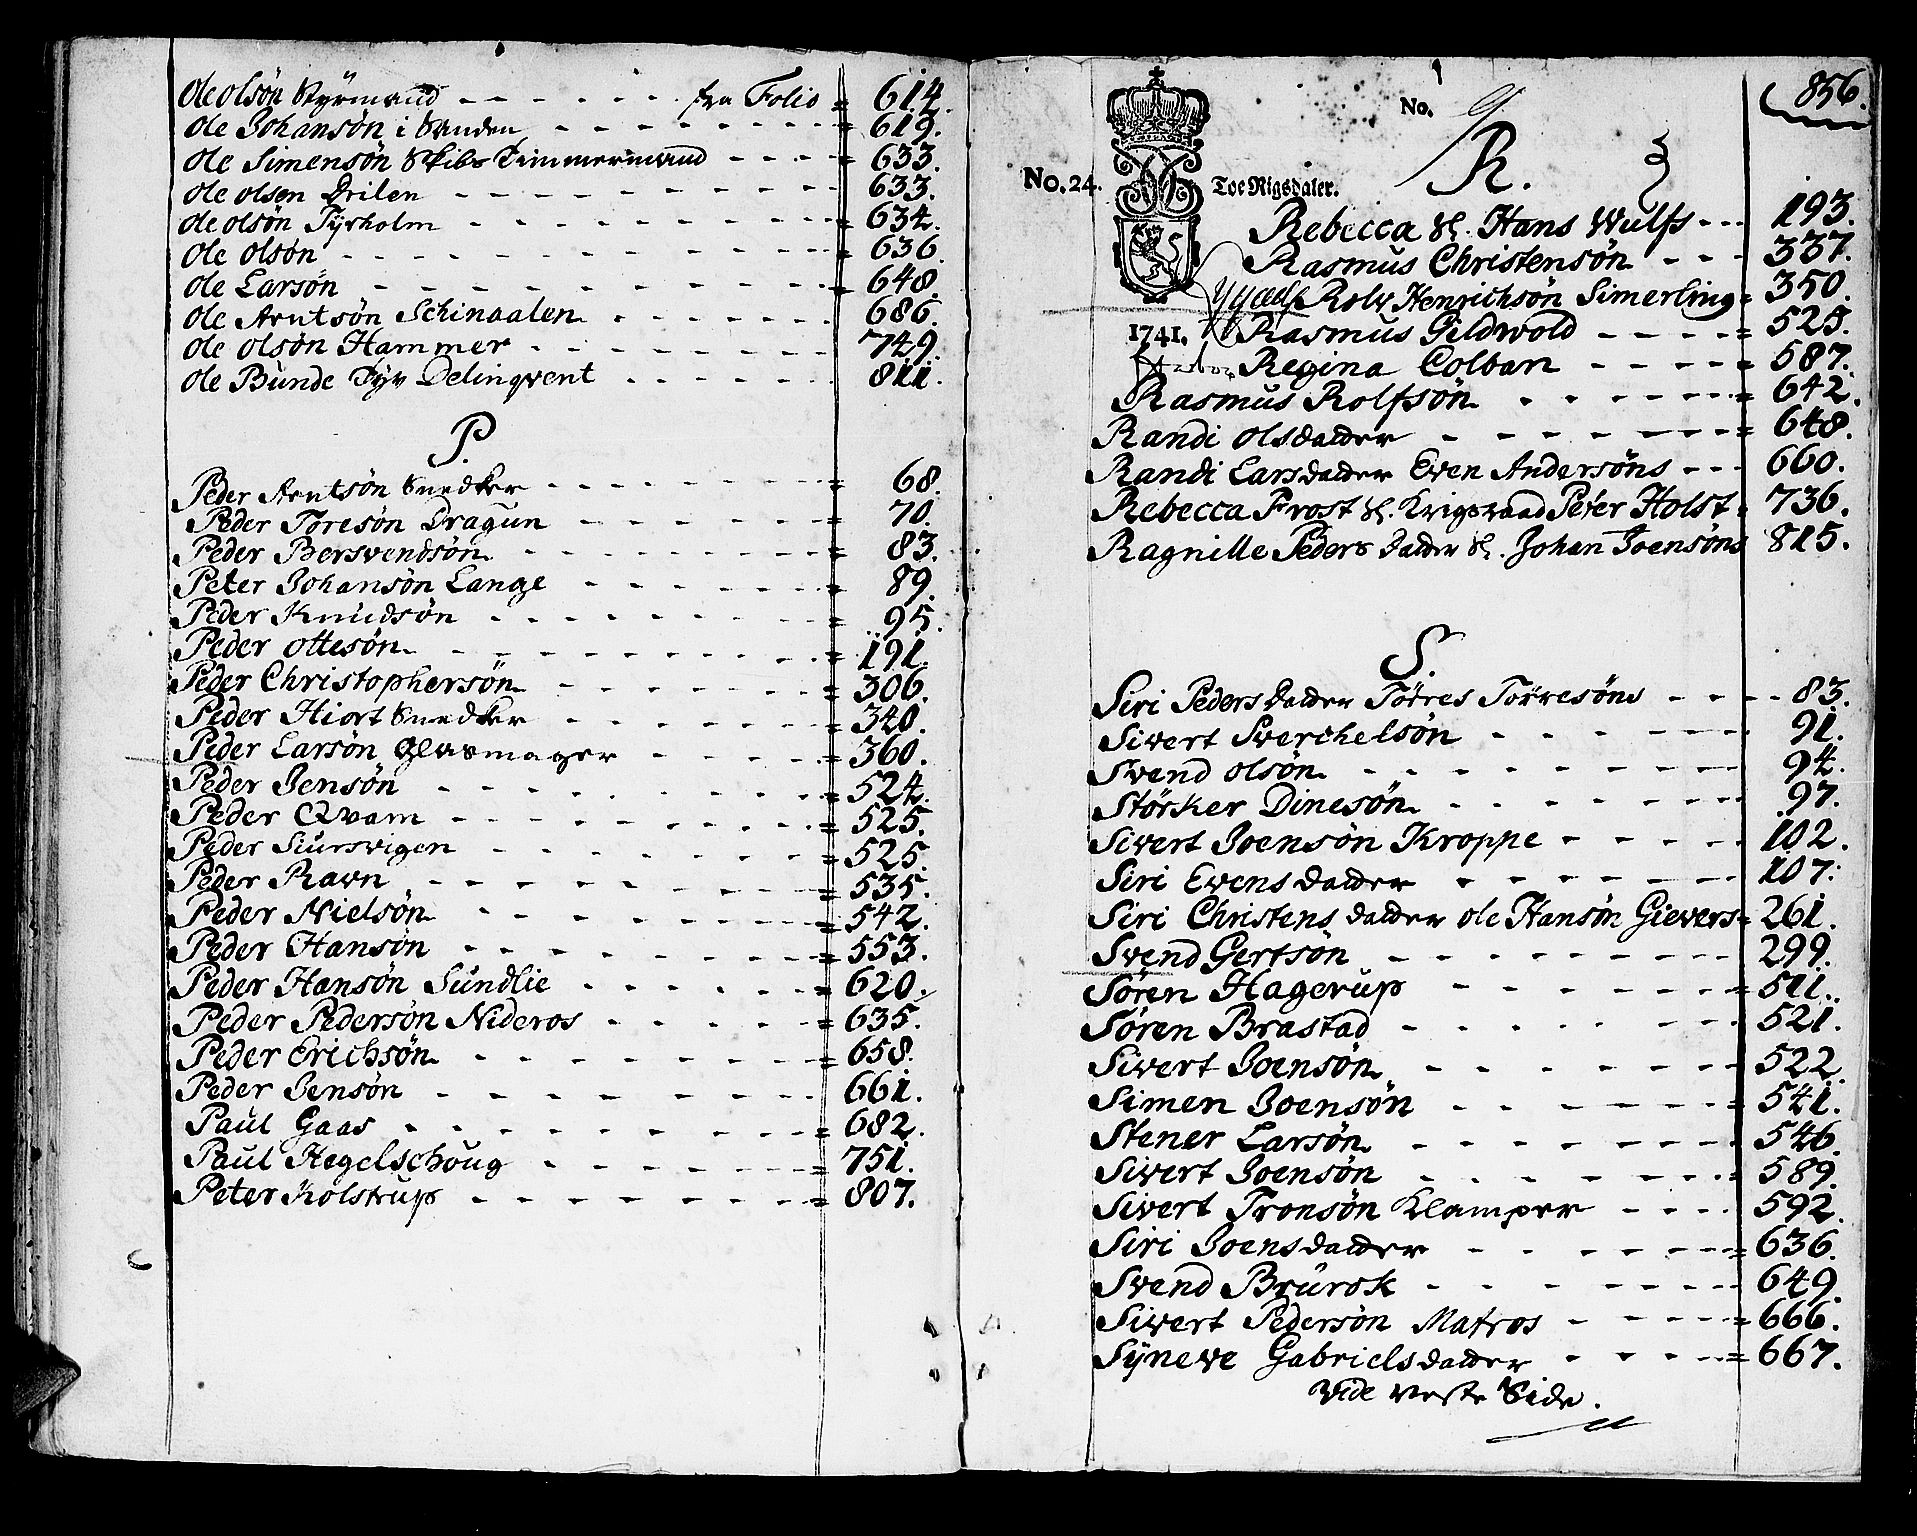 Ole olsøn Styrmand - - - - - - fra Folio = 614.
Ole Johansøn i Sanden - - - - - - - - 619.
Ole Simensøn Skibs Timmermand - - - - 633.
Ole olsen Drilen - - - - - - - - - 633.
Ole olsøn Tÿrholm - - - - - - - - - 634.
Ole olsøn - - - - - - - - - - - 636.
Ole Larsøn - - - - - - - - - - - 648.
Ole Arntsøn Schinaalen - - - - - - 686.
Ole olsøn Hammer - - - - - - - - 749.
Ole Bunde Tyv Delinqvent - - - - - 811.
P.
Peder Arntsøn Snedker - - - - - - - = 68.
Peder Toresøn Dragun - - - - - - 70.
Peder Bersvendsøn - - - - - - - = 83.
Peter Johansøn Lange - - - - - - = 89.
Peder Knudsøn - - - - - - - - = 95.
Peder Ottesøn - - - - - - - - = 191.
Peder Christophersøn - - - - - - = 306.
Peder Hiort Snedker - - - - - - = 340.
Peder Larsøn Glasmager - - - - - = 360.
Peder Jensøn - - - - - - - - - = 524.
Peder Qvam - - - - - - - - - = 525.
Peder Siursvigen - - - - - - - = 525.
Peder Ravn - - - - - - - - - = 535.
Peder Nielsøn - - - - - - - - = 542.
Peder Hansøn - - - - - - - - = 553.
Peder Hansøn Sundlie - - - - - - = 620.
Peder Pedersøn Nideros - - - - - = 635.
Peder Erichsøn - - - - - - - - = 658.
Peder Jensøn - - - - - - - - = 661.
Paul Gaas - - - - - - - - - = 682.
Paul Hegelschoug - - - - - - - = 751.
Peter Kolstrup - - - - - - - - = 807.
856.
No. 9
R.
No. 24. Toe Rigsdaler.
Rebecca Sl. Hans Wulfs - - - 193.
Rasmus Christensøn - - - 337.
Rolv Henrichsøn Simerling = 350.
1741. Rasmus Gildwold - - - - = 525.
Regina Colban - - - - - = 587.
Rasmus Rolfsøn - - - - - - - = 642.
Randi olsdatter - - - - - - - - = 648.
Randi Larsdatter Even Andersøns - - - 660.
Rebecca Frost Sl. Krigsraad Peter Holst = 736.
Ragnille Peders datter Sl. Johan Joensøns 815.
S.
Siri Pedersdatter Tørres Torresøns - - - - 83.
Sivert Sverchelsøn - - - - - - - 91.
Svend olsøn - - - - - - - - - 94.
Størker Dinesøn - - - - - - - - 97.
Sivert Joensøn Kroppe - - - - - 102.
Siri Evensdatter - - - - - - - 107.
Siri Christensdatter ole Hansøn Gievers = 261.
Svend Gertsøn - - - - - - - - - 299.
Søren Hagerup - - - - - - - - = 511.
Søren Brastad - - - - - - - - 521.
Sivert Joensøn - - - - - - - - 522.
Simen Joensøn - - - - - - - = 541.
Stener Larsøn - - - - - - - - = 546.
Sivert Joensøn - - - - - - - - = 589.
Sivert Tronsøn Klamper - - - - 592.
Siri Joensdatter - - - - - - - = 636.
Svend Brurok - - - - - - - - 649.
Sivert Pedersøn Matros - - - - - = 666.
Sÿneve Gabrielsdatter - - - - - = 667.
Vide neste Side.